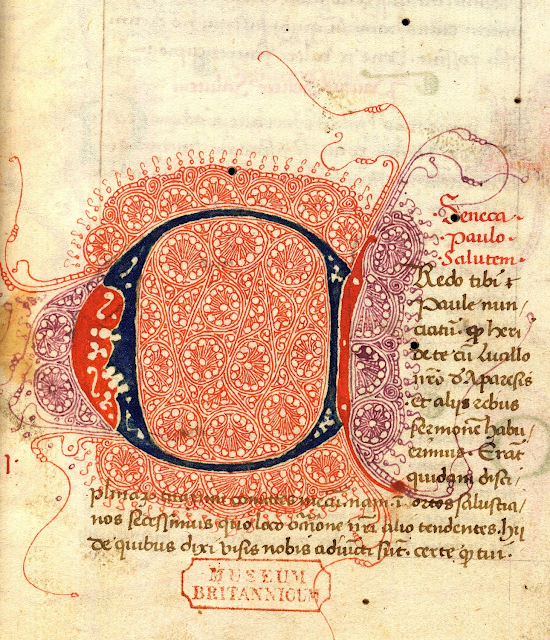 Seneca ·
paulo ·
Salutem ·
CRedo tibi
Paule nun/
ciatũ · ꝙ heri
de te cũ
nr̃o
Et alijs rebus
sermonẽ habu/
erimus · Erãt
quidam disci/
plinaꝝ comites mecũ. nam ĩ ortos salustia/
nos secessimus quo loco nr̃i alio tendentes. hij
de quibus dixi visis nobis adiũcti sũt. certe ꝙ tui.
MUSEUM
BRITANNICUM